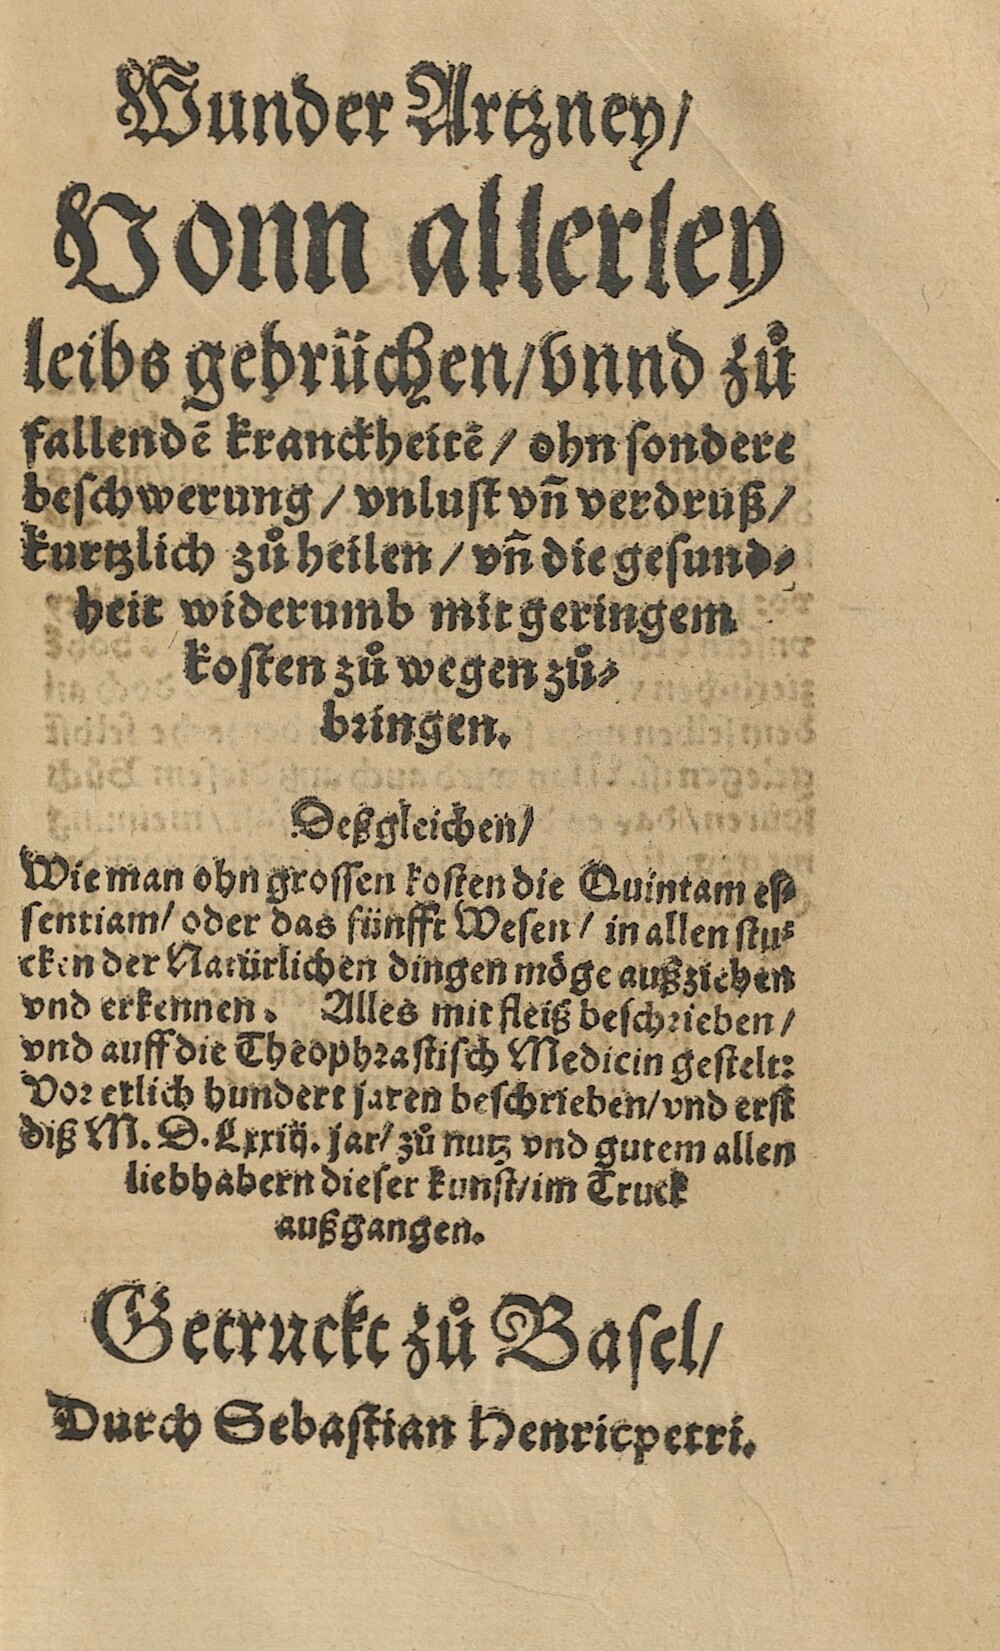 Wunder Artzney/
Vonn allerley
leibs gebrüchen/vnnd zů
fallendẽ kranckheitẽ/ ohn sondere
beschwerung/vnlust vñ verdruß/
kurtzlich zů heilen/vñ die gesund⸗
heit widerumb mit geringem
kosten zů wegen zů⸗
bringen.
Deßgleichen/
Wie man ohn grossen kosten die Quintam es⸗
sentiam/ oder das fünfft Wesen/ in allen stu⸗
cken der Natürlichen dingen möge außziehen
vnd erkennen. Alles mit fleiß beschrieben/
vnd auff die Theophrastisch Medicin gestelt:
Vor etlich hundert jaren beschrieben/vnd erst
diß M. D. Lxxiij. jar/ zů nutz vnd gutem allen
liebhabern dieser kunst/im Truck
außgangen.
Getruckt zů Basel/
Durch Sebastian Henricpetri.